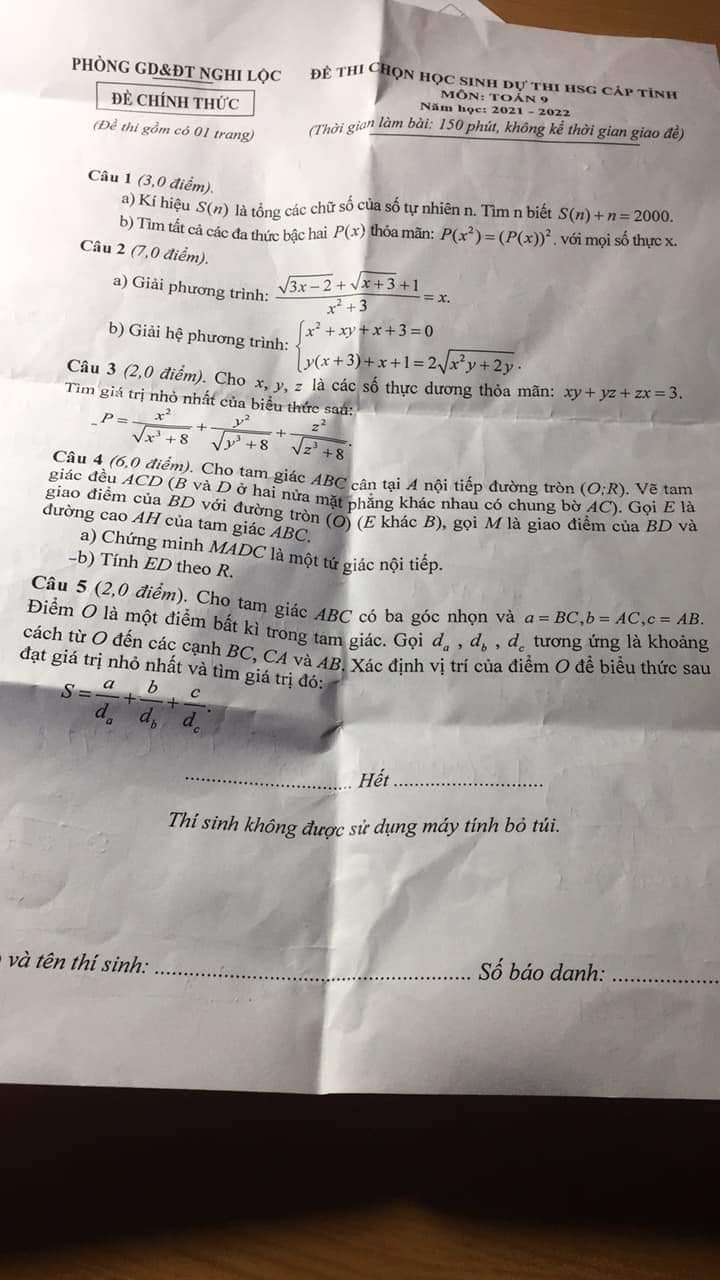 PHÒNG GD&ĐT NGHI LỘC
ĐỀ CHÍNH THỨC
(Đề thi gồm có 01 trang)
ĐỀ THI CHỌN HỌC SINH DỰ THI HSG CẤP TỈNH
MÔN: TOÁN 9
Năm học: 2021 - 2022
(Thời gian làm bài: 150 phút, không kể thời gian giao đề)
Câu 1 (3,0 điểm).
a) Kí hiệu S(n) là tổng các chữ số của số tự nhiên n. Tìm n biết S(n) + n = 2000.
b) Tìm tất cả các đa thức bậc hai P(x) thỏa mãn: P(x²) = (P(x))². với mọi số thực x.
Câu 2 (7,0 điểm).
a) Giải phương trình: (√(3x − 2) + √(x + 3) + 1)/(x² + 3) = x.
b) Giải hệ phương trình: { x² + xy + x + 3 = 0
y(x + 3) + x + 1 = 2√(x²y + 2y).
Câu 3 (2,0 điểm). Cho x, y, z là các số thực dương thỏa mãn: xy + yz + zx = 3.
Tìm giá trị nhỏ nhất của biểu thức sau:
P = x²/√(x³ + 8) + y²/√(y³ + 8) + z²/√(z³ + 8).
Câu 4 (6,0 điểm). Cho tam giác ABC cân tại A nội tiếp đường tròn (O;R). Vẽ tam
giác đều ACD (B và D ở hai nửa mặt phẳng khác nhau có chung bờ AC). Gọi E là
giao điểm của BD với đường tròn (O) (E khác B), gọi M là giao điểm của BD và
đường cao AH của tam giác ABC.
a) Chứng minh MADC là một tứ giác nội tiếp.
b) Tính ED theo R.
Câu 5 (2,0 điểm). Cho tam giác ABC có ba góc nhọn và a = BC, b = AC, c = AB.
Điểm O là một điểm bất kì trong tam giác. Gọi dₐ , d_b , d_c tương ứng là khoảng
cách từ O đến các cạnh BC, CA và AB. Xác định vị trí của điểm O để biểu thức sau
đạt giá trị nhỏ nhất và tìm giá trị đó:
S = a/dₐ + b/d_b + c/d_c.
.................................. Hết ..............................
Thí sinh không được sử dụng máy tính bỏ túi.
và tên thí sinh: .................................................. Số báo danh: ..................